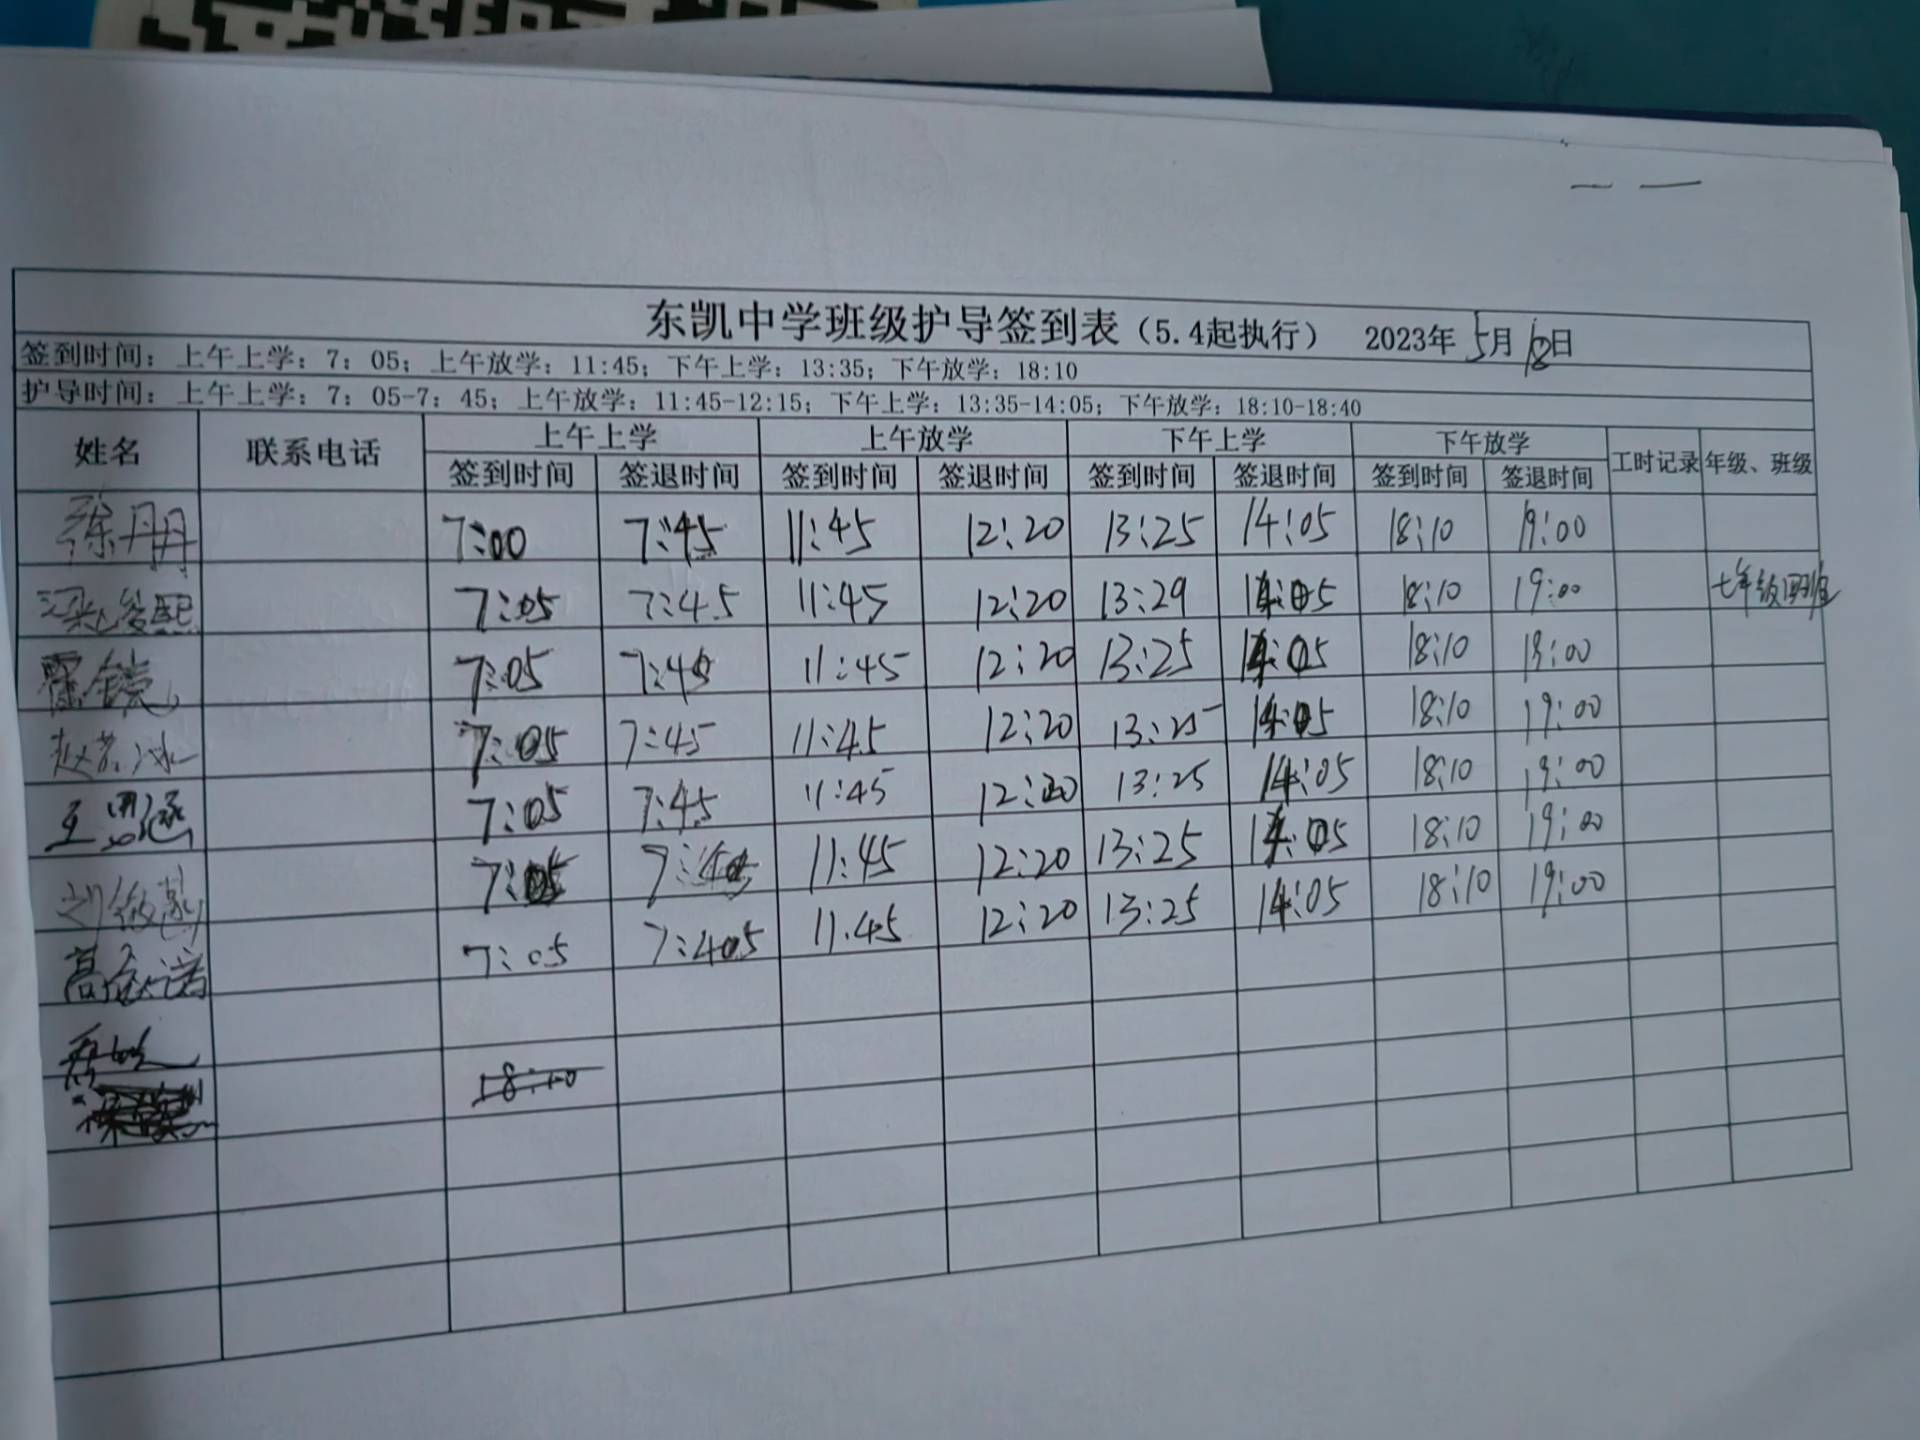 东凯中学班级护导签到表（5.4起执行） 2023年5月18日
签到时间：上午上学：7：05；上午放学：11:45；下午上学：13:35；下午放学：18:10
护导时间：上午上学：7：05-7：45；上午放学：11:45-12:15；下午上学：13:35-14:05；下午放学：18:10-18:40
姓名 联系电话 上午上学 上午放学 下午上学 下午放学 工时记录 年级、班级
签到时间 签退时间 签到时间 签退时间 签到时间 签退时间 签到时间 签退时间
徐丹丹 7:00 7:45 11:45 12:20 13:25 14:05 18:10 19:00
7:05 7:45 11:45 12:20 13:29 14:05 18:10 19:00 七年级四班
7:05 7:45 11:45 12:20 13:25 14:05 18:10 19:00
7:05 7:45 11:45 12:20 13:25 14:05 18:10 19:00
王思涵 7:05 7:45 11:45 12:20 13:25 14:05 18:10 19:00
7:05 11:45 12:20 13:25 14:05 18:10 19:00
7:05 7:405 11:45 12:20 13:25 14:05 18:10 19:00
18:10